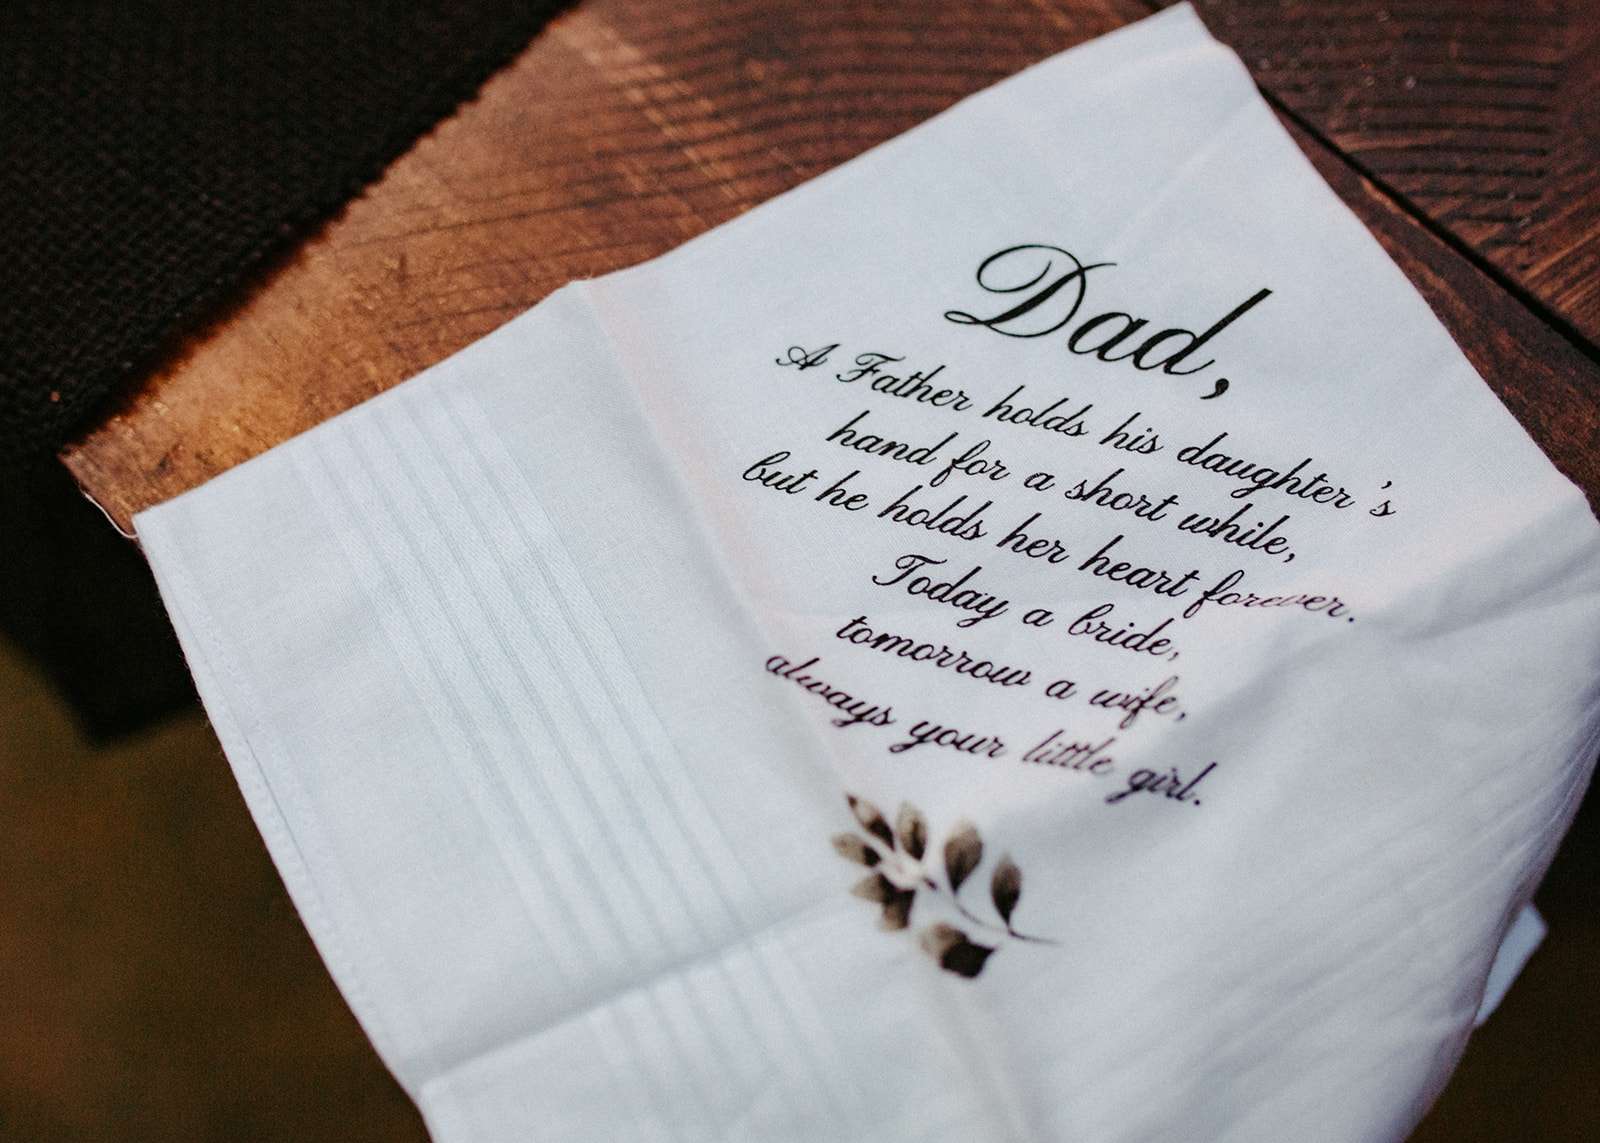 Dad,
A Father holds his daughter's
hand for a short while,
but he holds her heart forever.
Today a bride,
tomorrow a wife,
always your little girl.